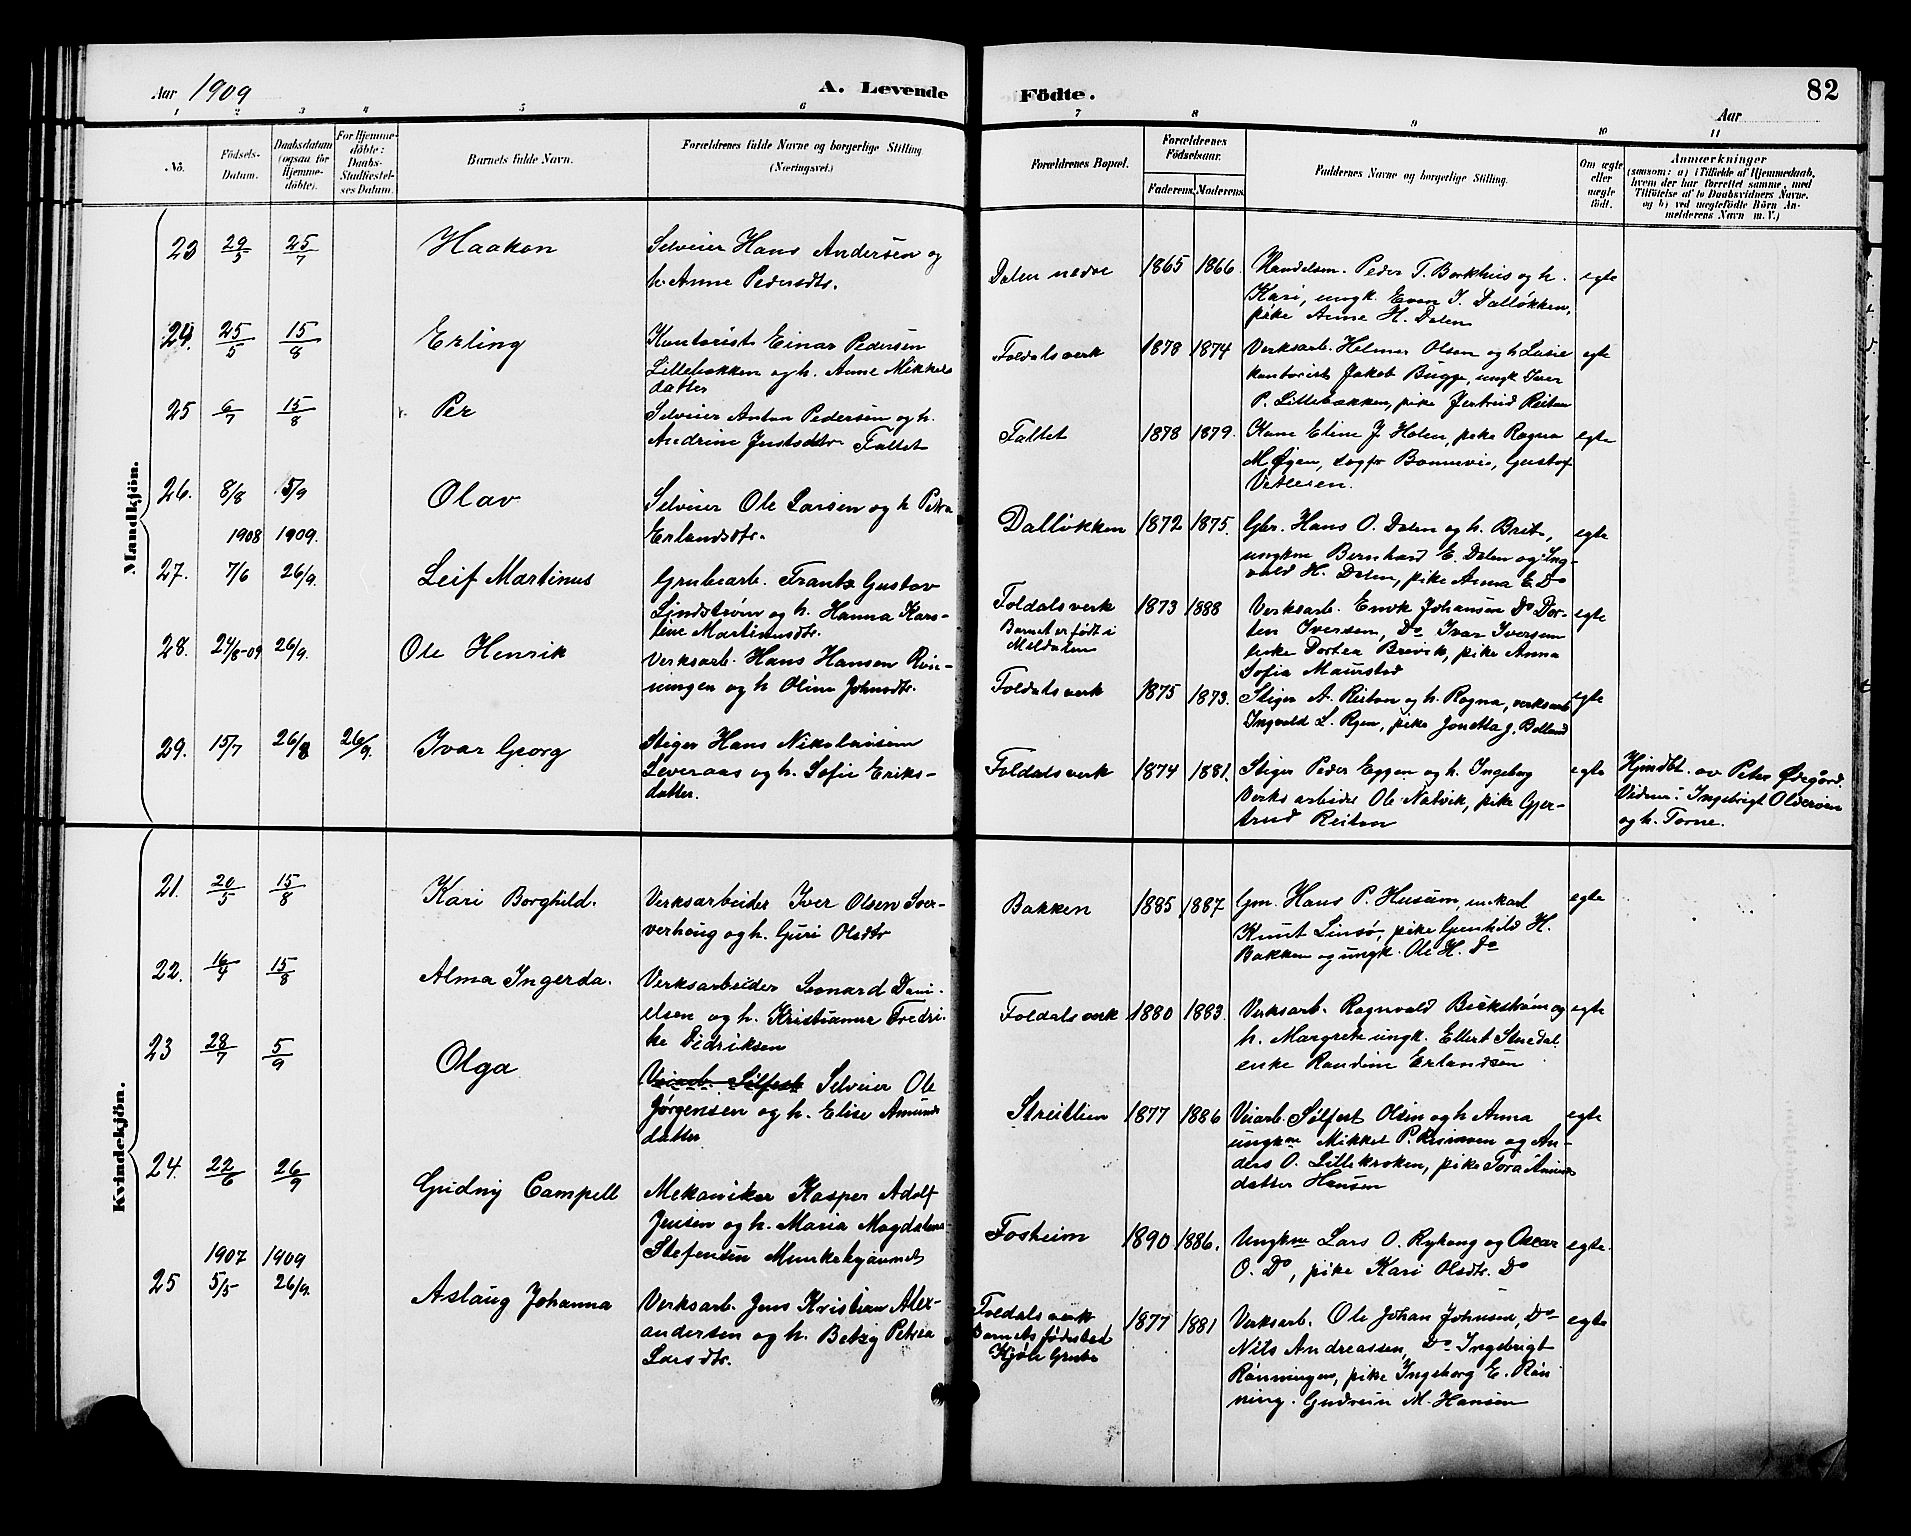 Aar 1909
A. Levende
Födte.
82
Aar
1 2 3 4 5 6 7 8 9 10 11
No.
Födsels-
Datum.
Daabsdatum
(ogsaa for
Hjemme-
döbte).
For Hjemme-
döbte:
Daabs-
Stadfæstel-
ses Datum.
Barnets fulde Navn.
Forældrenes fulde Navne og borgerlige Stilling
(Næringsvei.)
Forældrenes Bopæl.
Forældrenes
Födselsaar.
Faderens.
Moderens.
Faddernes Navne og borgerlige Stilling.
Om ægte
eller
uægte
födt.
Anmærkninger
(saasom: a) i Tilfælde af Hjemmedaab,
hvem der har forrettet samme, med
Tilföielse af to Daabsvidners Navne,
og b) ved uægtefödte Börn An-
melderens Navn m. V.)
Mandkjön.
23 29/5 25/7 Haakon
Selveier Hans Andersen og
h. Anne Pedersdtr.
Dalen nedre 1865 1866.
Handelsm. Peder T. Borkhus og h.
Kari, ungk. Even J. Dalløkken,
pike Anne H. Dalen
egte
24. 25/5 15/8 Erling
Kontorist Einar Pedersen
Lillebakken og h. Anne Mikkels
datter
Foldals verk 1878 1874
Verksarb. Helmer Olsen og h. Lusie
kontorist Jakob Bugge, ungk Iver
P. Lillebækken, pike Jertrud Reitan
egte
25 6/7 15/8 Per
Selveier Anton Pedersen og h.
Andrine Justsdtr Faltet
Faltet 1878 1879.
Kone Eline J. Holen, pike Ragna
M. Øien, sogpr Bonnevie, Gustaf
egte
26. 8/8 5/9 Olav
Selveier Ole Larsen og h Petra
Erlandsdtr.
Dalløkken 1872 1875.
Gbr. Hans O. Dalen og h. Brit,
ungkne Bernhard E. Dalen og Ing-
vald H. Dalen, pike Anna E. Do
egte
1908 1909.
27. 7/6 26/9. Leif Martinus
Grubearb. Frantz Gustav
Lindstrøm og h. Hanna Kars-
tine Martinusdtr.
Foldals verk
Barnet er født i
Meldalen
1873 1888
Verksarb. Enok Johansen Do Dor-
ten Iversen, Do Ivar Iversen
pike Dortea Brevik, pike Anna
Sofia Maurstad
egte
28. 24/8-09 26/9. Ole Henrik
Verksarb. Hans Hansen Røn-
ningen og h Oline Johnsdtr.
Foldals verk 1875 1873.
Stiger A. Reitan og h. Ragna, verksarb
Ingvald L. Ryen, pike Jonetta J. Bolland
egte
29. 15/7 26/8 26/9. Ivar Georg
Stiger Hans Nikolaisen
Leveraas og h. Sofie Eriks-
datter.
Foldals verk 1874 1881.
Stiger Peder Eggen og h. Ingeborg
Verksarbeider Ole Natvik, pike Gjer-
trud Reitan
egte
Hjmdbt. av Peter Ødegård.
Vidner: Ingebrigt Olderøien
og h. Torne.
Kvindekjön.
21. 20/5 15/8 Kari Borghild.
Verksarbeider Iver Olsen Sver-
verhoug og h. Guri Olsdtr
Bakken 1885 1887
Gm. Hans P. Husum, enkem.
Knut Linsø, pike Gunhild H.
Bakken og ungk. Ole H. Do
egte
22. 16/4 15/8 Alma Ingerda.
Verksarbeider Leonard Dani-
elsen og h. Kristianne Fredri-
ke Didriksen
Foldals verk 1880 1883.
Verksarb. Ragnvald Bækstrøm og
h. Margrete ungk. Ellert Stuedal
enke Randine Erlandsen
egte
23 28/7 5/9 Olga
Veiarb. Sølfest Selveier Ole
Jørgensen og h. Elise Amunds
datter
Streitlien 1877 1886
Veiarb. Sølfest Olsen og h Anna
ungkne Mikkel P. Krismoen og An-
ders O. Lillekroken, pike Tora Amunds
datter Hansen
egte
24. 22/6 26/9 Gudny Campell
Mekaniker Kasper Adolf
Jensen og h. Maria Magdalena
Stefensen
Fosheim 1890 1886.
Ungkne Lars O. Ryhaug og Oscar
O. Do, pike Kari Olsdtr. Do
egte.
1907 1909
25 5/5 26/9. Aslaug Johanna
Verksarb. Jens Kristian Alex-
andersen og h. Betzy Petrea
Larsdtr.
Foldals verk
Barnets fødested
Kjøli Grube
1877 1881
Verksarb. Ole Johan Johnsen, Do
Nils Andreassen, Do Ingebrigt
Rønningen, pike Ingeborg E. Røn
ning. Gudrun M. Hansen
egte